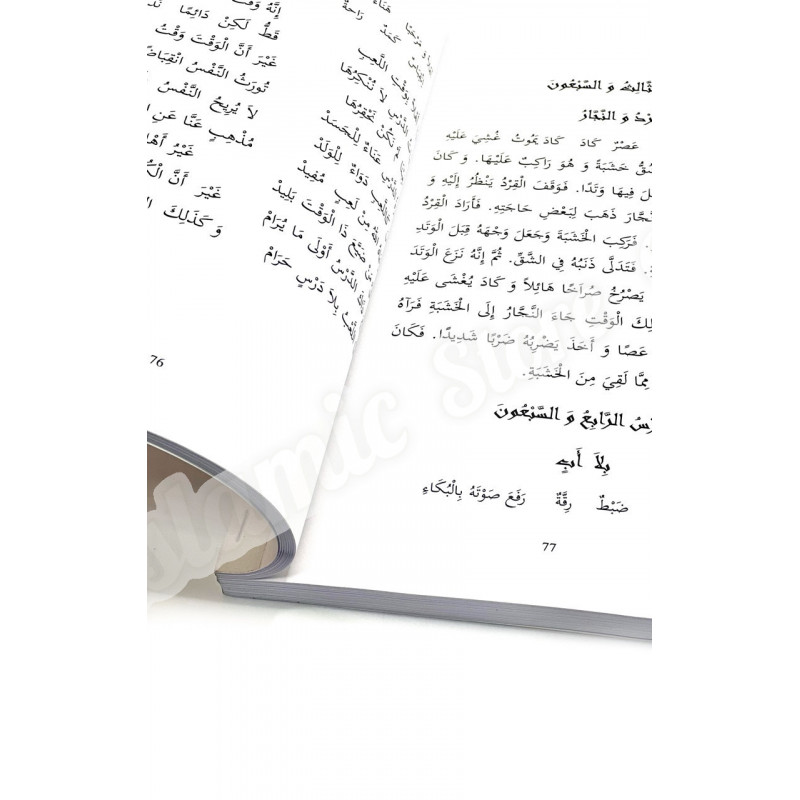 إِنَّهُ وَقْتُ
قَطُّ لَكِنْ دَائِمًا
غَيْرَ أَنَّ الْوَقْتَ وَقْتُ
تُورِثُ النَّفْسُ انْقِبَاضً
لاَ يُرِيحُ النَّفْسَ
مُذْهِبٍ عَنَّا عَنِ
غَيْرُ أَهْلٍ
غَيْرَ أَنَّ الْكُ
وَ كَذَلِكَ
هَنَاءً
كَمَدٌ رَاحَةٌ
وَقْتِ اللَّعِبِ
الدَّرْسِ لاَ نُنْكِرُهَا
نَكُنْ نَحْقِرُهَا
عَنَاءٌ لِلْجَسَدْ
دَوَاءٌ لِلْوَلَدْ
مِنْ لَعِبٍ مُفِيدْ
ضَيَّعَ ذَا الْوَقْتَ بَلِيدْ
الدَّرْسُ أَوْلَى مَا يُرَامْ
بِلاَ دَرْسٍ حَرَامْ
76
ثَّالِثُ وَ السَّبْعُونَ
رْدُ وَ النَّجَّارُ
عَصْرٌ كَادَ كَادَ يَمُوتُ غُشِيَ عَلَيْهِ
شُقُّ خَشَبَةً وَ هُوَ رَاكِبٌ عَلَيْهَا. وَ كَانَ
لَ فِيهَا وَتَدًا. فَوَقَفَ الْقِرْدُ يَنْظُرُ إِلَيْهِ وَ
نَّجَّارَ ذَهَبَ لِبَعْضِ حَاجَتِهِ. فَأَرَادَ الْقِرْدُ
. فَرَكِبَ الْخَشَبَةَ وَجَعَلَ وَجْهَهُ قِبَلَ الْوَتَدِ
. فَتَدَلَّى ذَنَبُهُ فِي الشَّقِّ. ثُمَّ إِنَّهُ نَزَعَ الْوَتَدَ
يَصْرُخُ صُرَاخًا هَائِلاً وَ كَادَ يُغْشَى عَلَيْهِ
لِكَ الْوَقْتِ جَاءَ النَّجَّارُ إِلَى الْخَشَبَةِ فَرَآهُ
عَصًا وَ أَخَذَ يَضْرِبُهُ ضَرْبًا شَدِيدًا. فَكَانَ
مِمَّا لَقِيَ مِنَ الْخَشَبَةِ.
رْسُ الرَّابِعُ وَ السَّبْعُونَ
بِلاَ أَبٍ
ضَبْطٌ رِقَّةٌ رَفَعَ صَوْتَهُ بِالْبُكَاءِ
77
Islamic Store